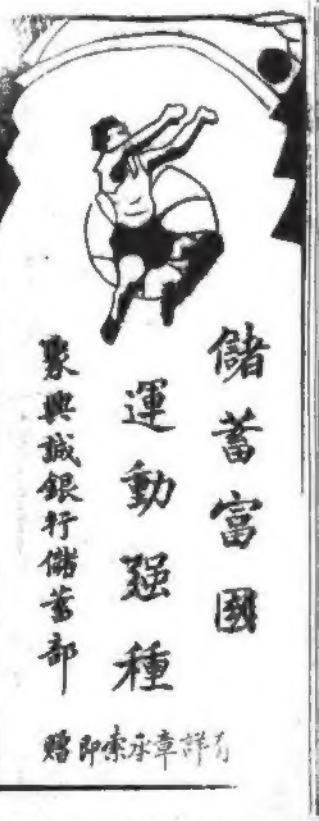 儲蓄富國
運動强種
聚興誠銀行儲蓄部
有詳章承索即贈